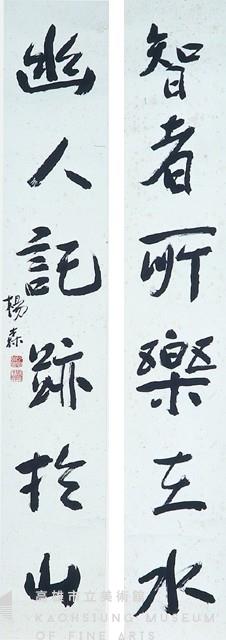 智者所樂在水
幽人託跡於山
楊森
高雄市立美術館
KAOHSIUNG MUSEUM
OF FINE ARTS